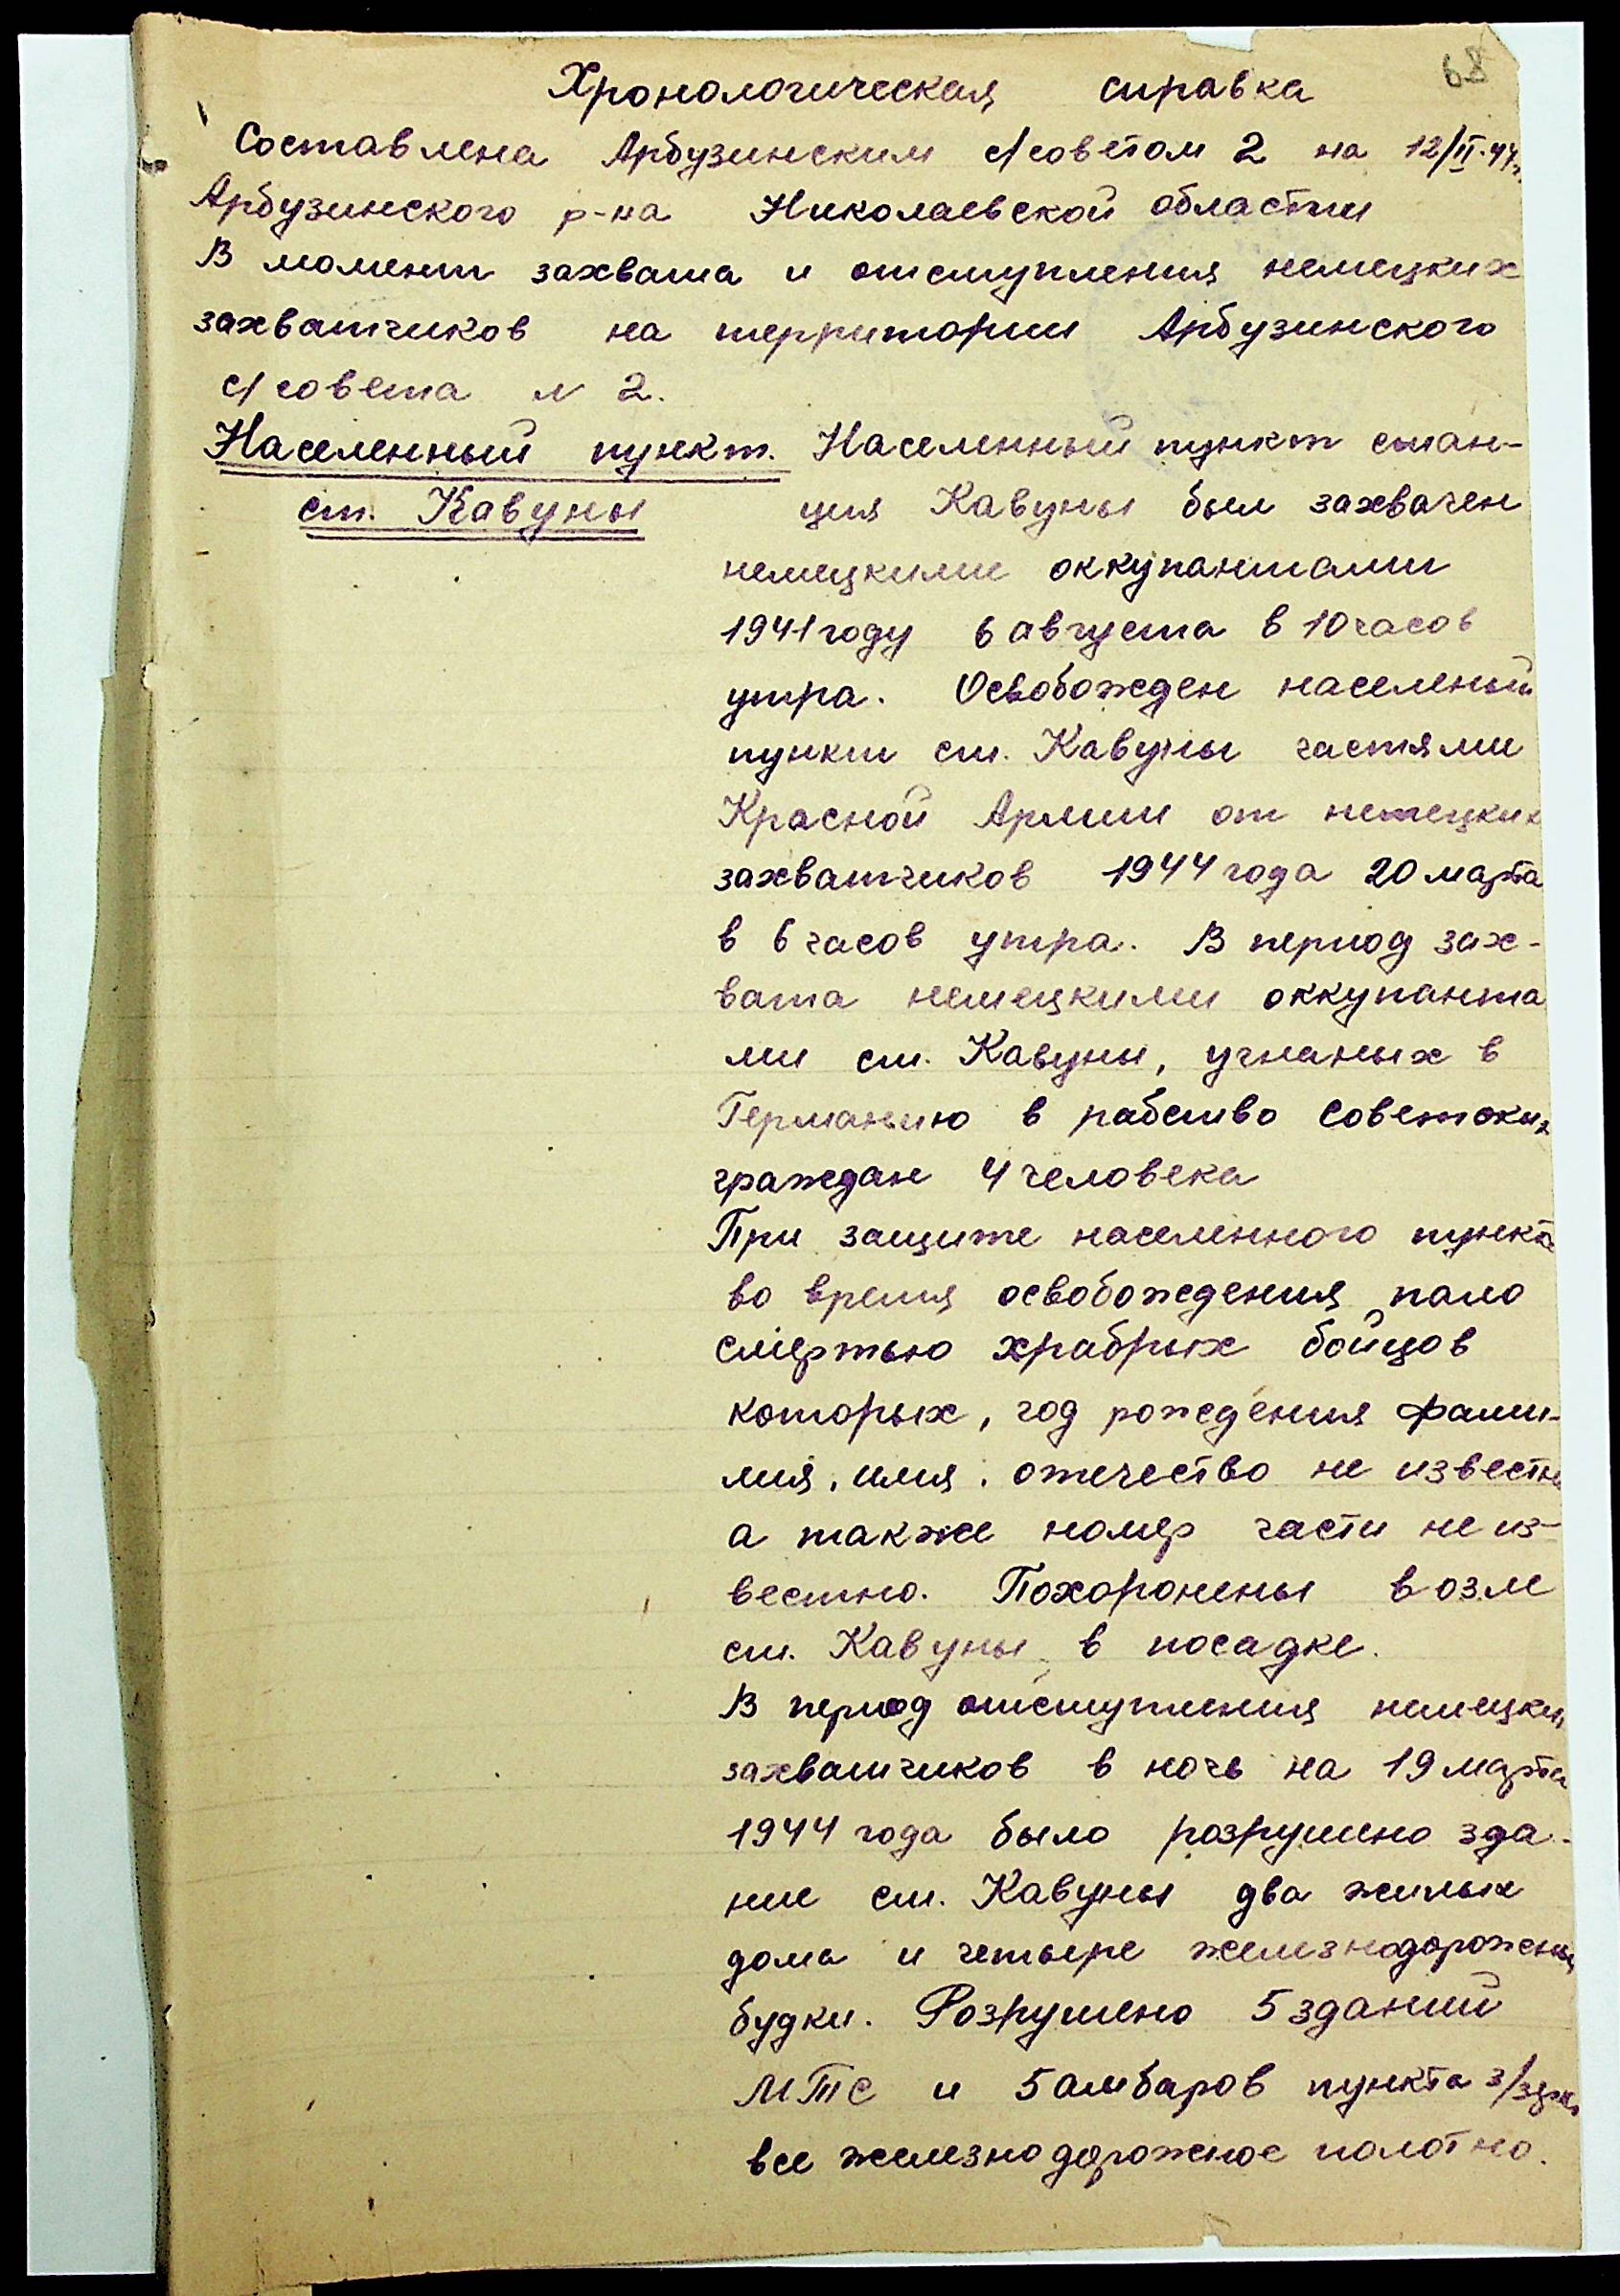 68
Хронологическая справка
Составлена Арбузинским с/советом 2 на 12/II.44г.
Арбузинского р-на Николаевской области
В момент захвата и отступления немецких
захватчиков на территории Арбузинского
с/совета N 2.
Населенный пункт. Населенный пункт стан-
ст. Кавуны ция Кавуны был захвачен
немецкими оккупантами
1941 году 6 августа в 10 часов
утра. Освобожден населеный
пункт ст. Кавуны частями
Красной Армии от немецких
захватчиков 1944 года 20 марта
в 6 часов утра. В период зах-
вата немецкими оккупанта
ми ст. Кавуны, угнаных в
Германию в рабство советских
граждан 4 человека
При защите населенного пункта
во время освобождения пало
смертью храбрых бойцов
которых, год рождения фами-
лия, имя, отечество не известно
а также номер части не из-
вестно. Похоронены возле
ст. Кавуны в посадке.
В период отступления немецких
захватчиков в ночь на 19 марта
1944 года было розрушено зда-
ние ст. Кавуны два жилых
дома и четыре железнодорожных
будки. Розрушено 5 зданий
МТС и 5 амбаров пункта
все железнодорожное полотно.